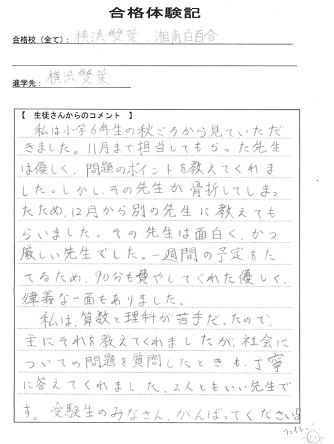 合格体験記
合格校（全て）： 横浜雙葉、湘南白百合
進学先： 横浜雙葉
【 生徒さんからのコメント 】
私は小学6年生の秋ごろから見ていただ
きました。11月まで担当してもらった先生
は優しく、問題のポイントを教えてくれま
した。しかし、その先生が骨折してしまっ
たため、12月から別の先生に教えても
らいました。その先生は面白く、かつ
厳しい先生でした。一週間の予定をた
てるため、90分も費やしてくれた優しく、
律義な一面もありました。
私は、算数と理科が苦手だったので、
主にそれを教えてくれましたが、社会に
ついての問題を質問したときも、丁寧
に答えてくれました。2人ともいい先生で
す。受験生のみなさん、がんばってください!!